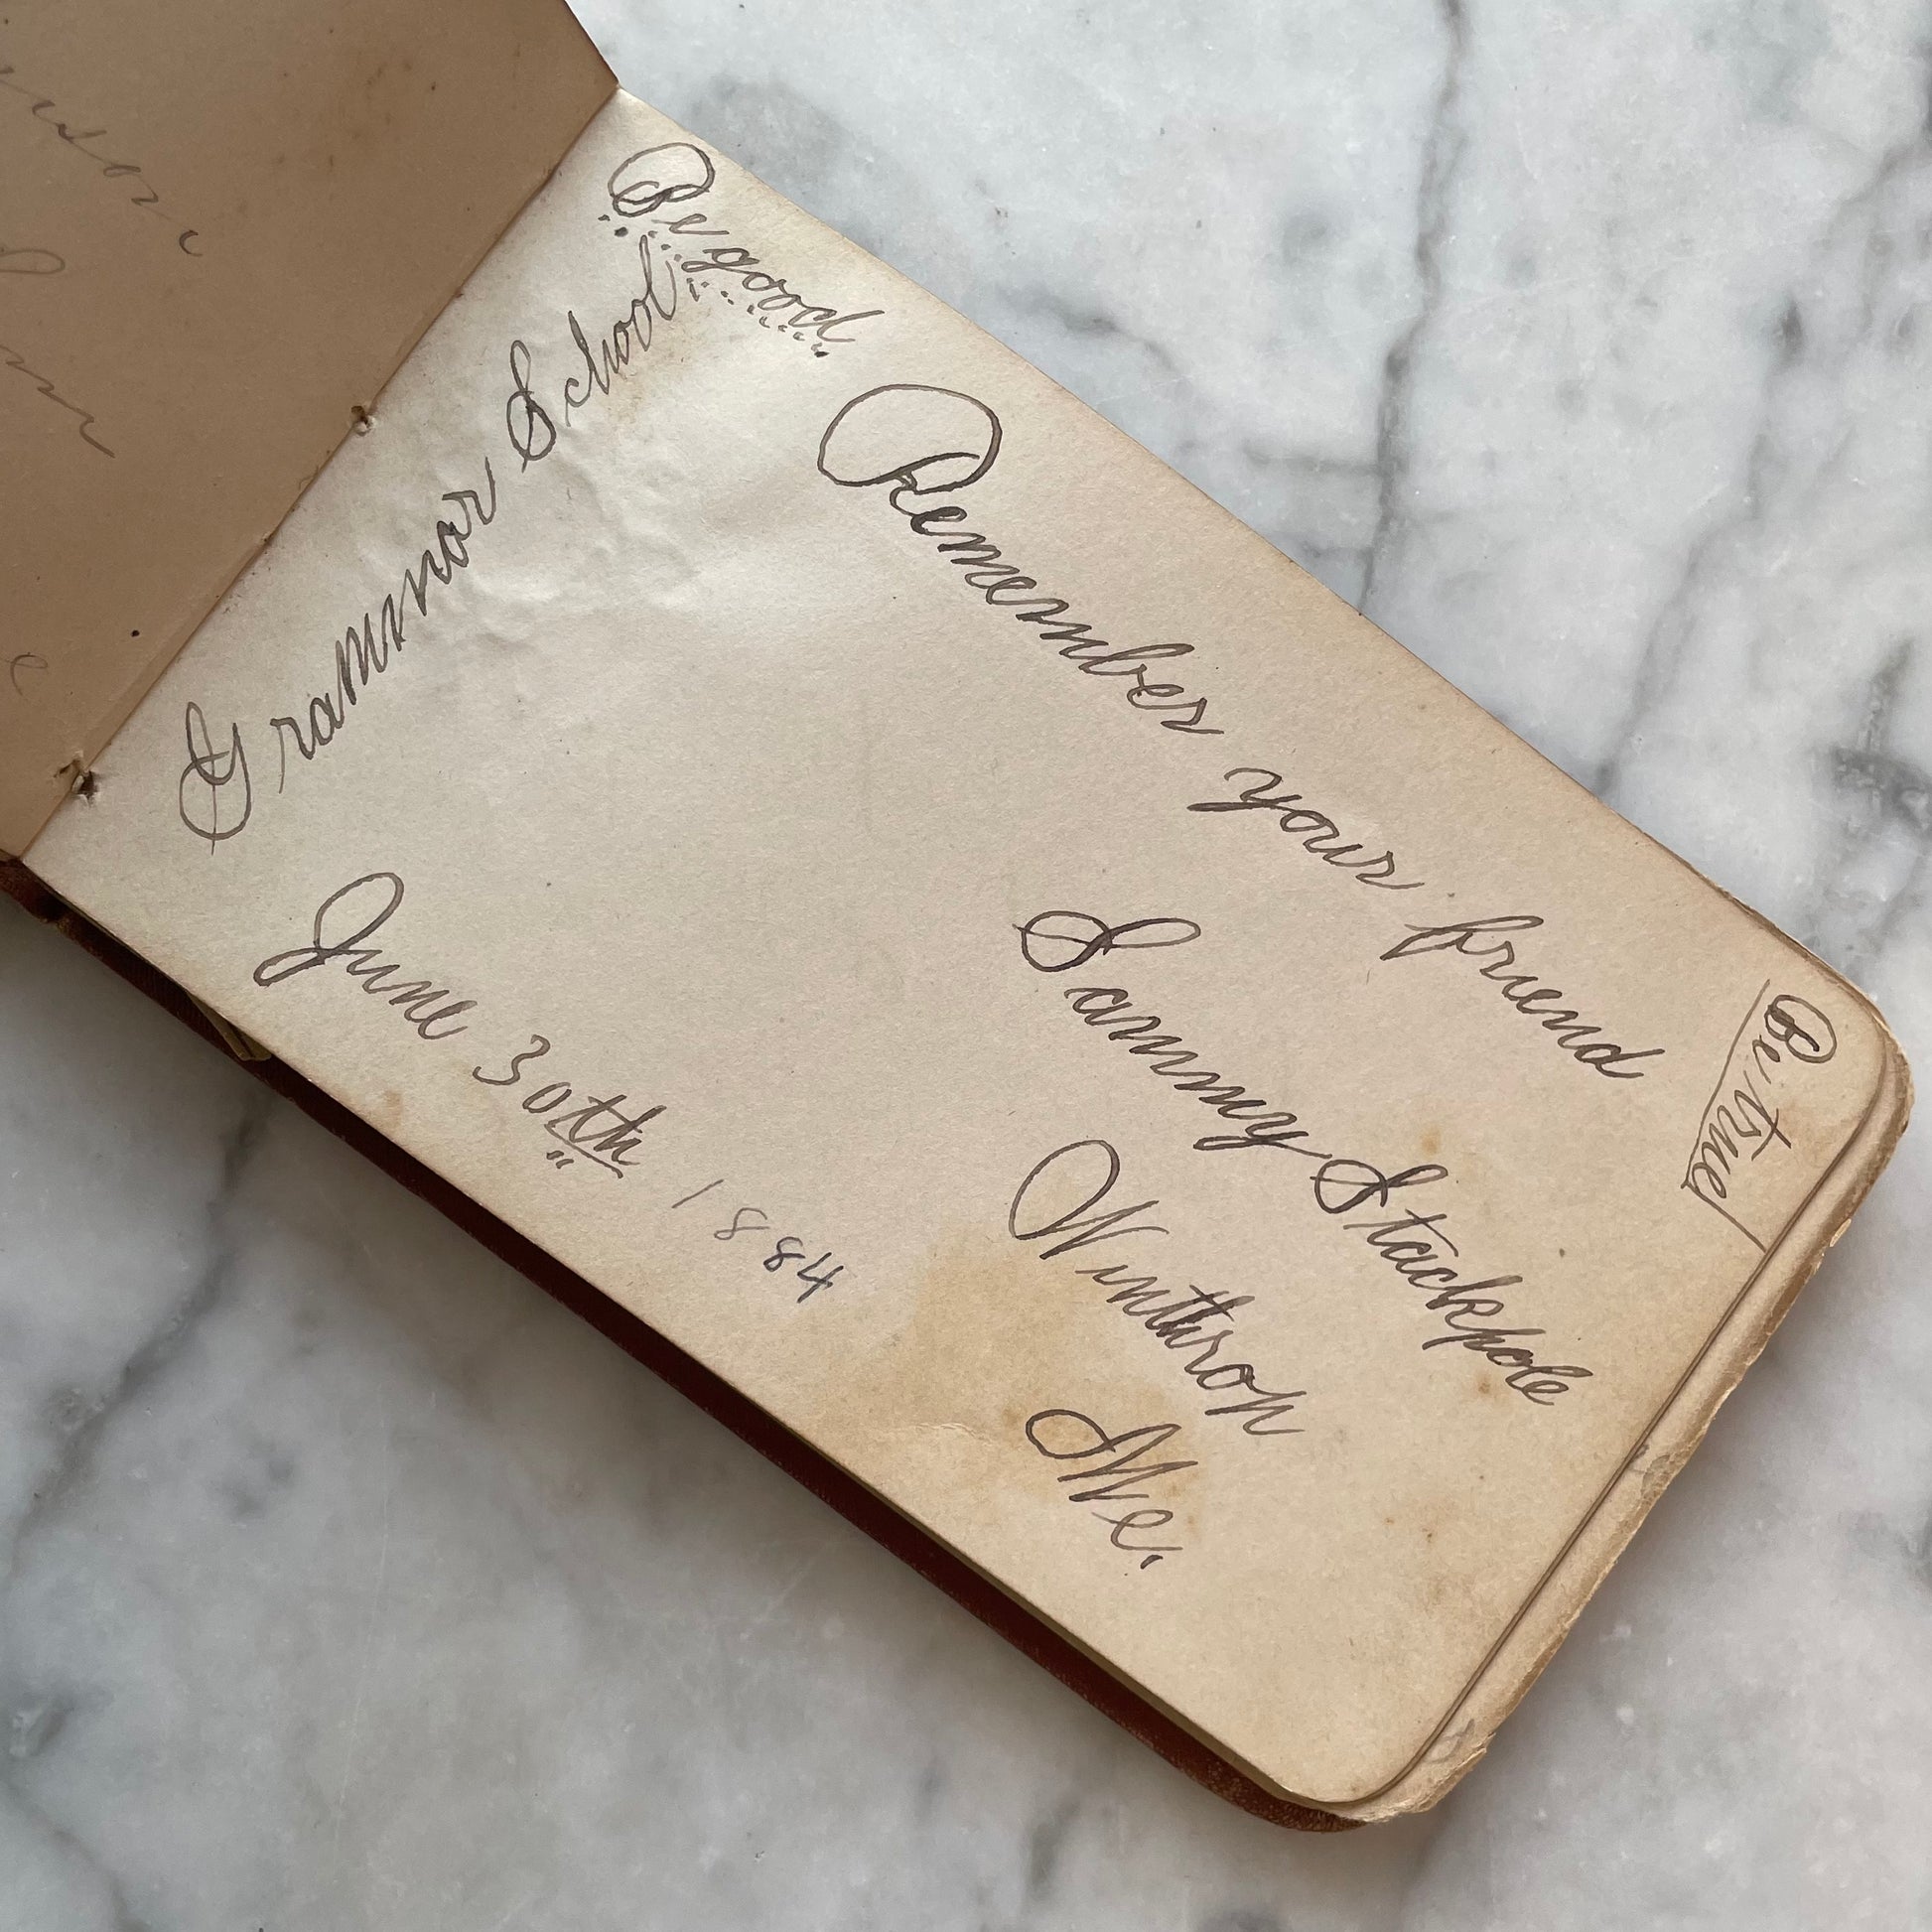 Be good
Grammar School
Remember your friend
Sammy Stackpole
Winthrop
Me.
June 30th 1884
Be true